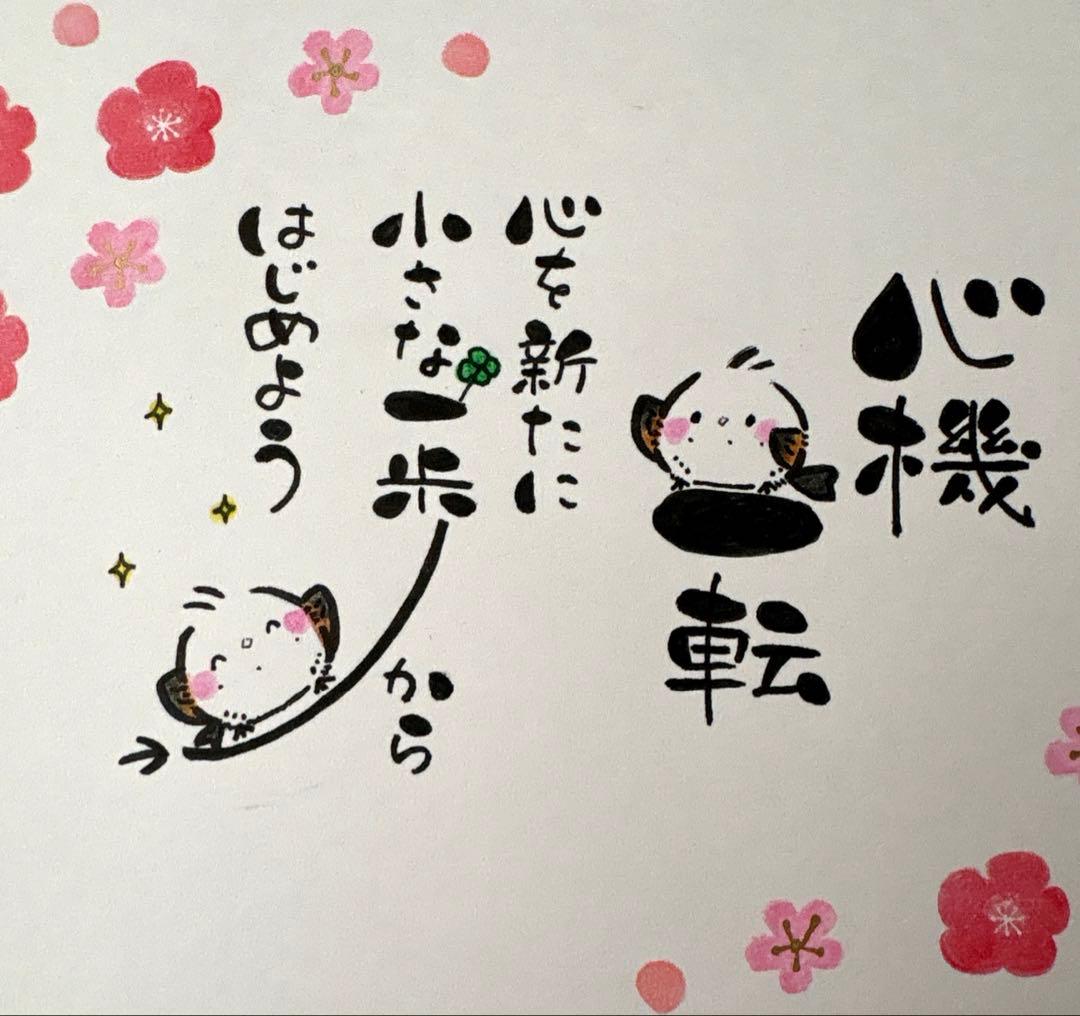 心機
一転
心を新たに
小さな一歩から
はじめよう